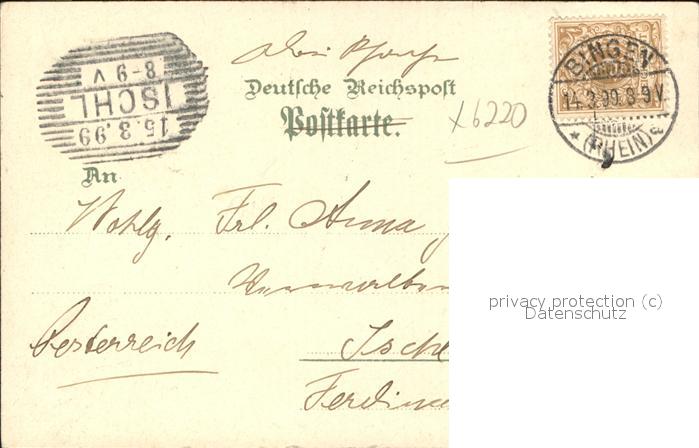 Deutsche Reichspost
Postkarte.
x6220
BINGEN
14.3.99.8-9V.
* (RHEIN) c
8-9 V
ISCHL
15.3.99
An
Wohlg. Frl. Anna
Oesterreich
Ischl
privacy protection (c)
Datenschutz